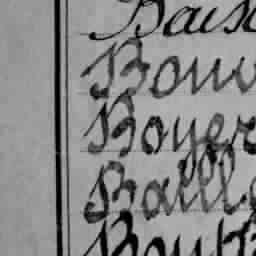 Bais
Bouv
Boyer
Baill
Boutt